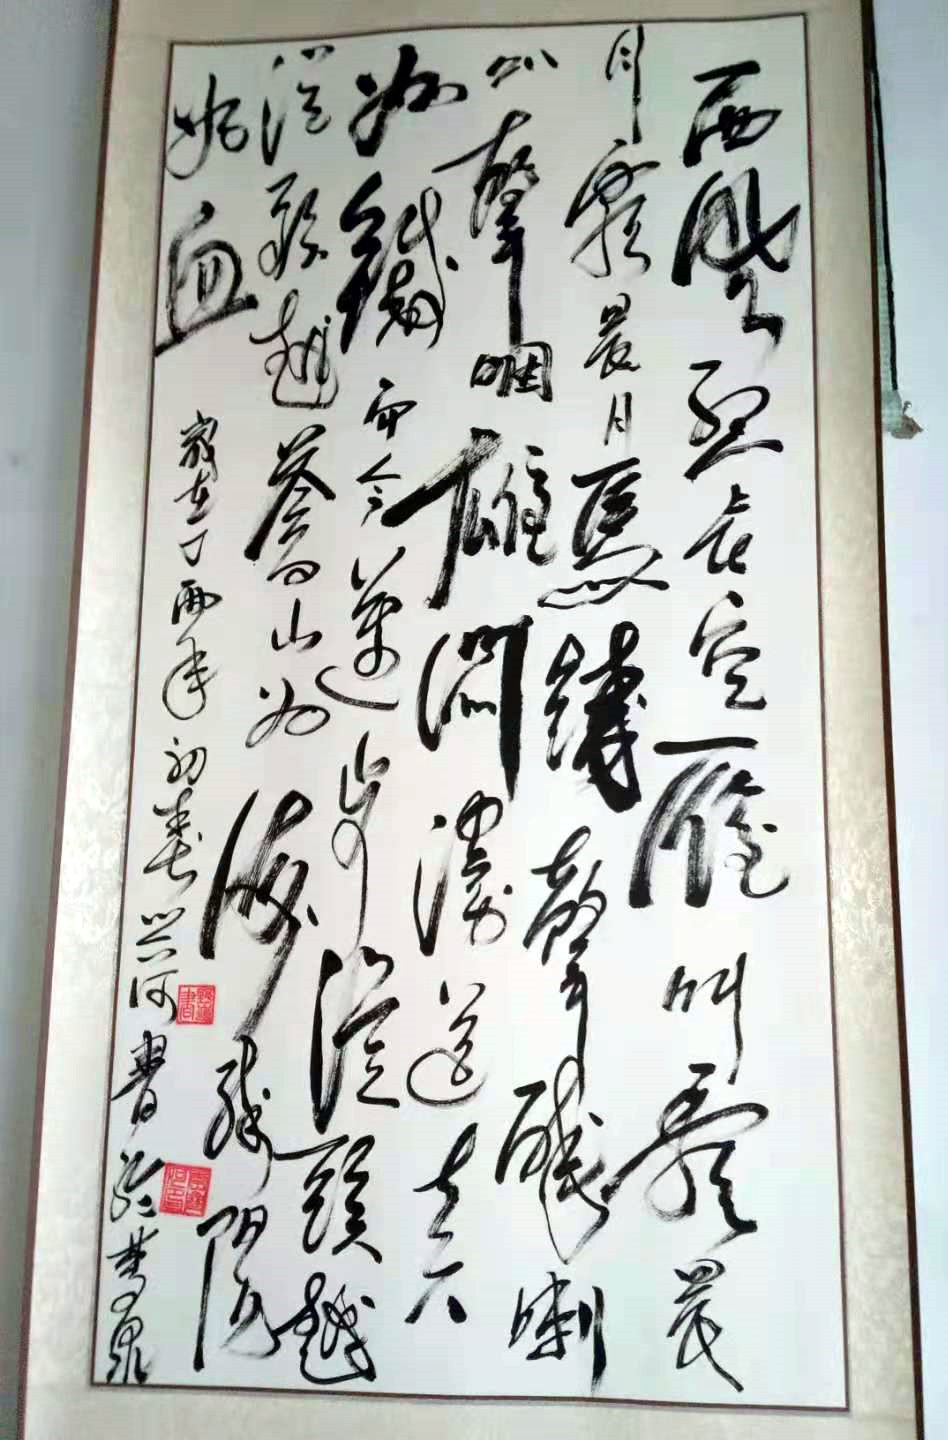 西風烈長空雁叫霜晨
月霜晨月馬蹄聲碎喇
叭聲咽雄關漫道真
如鐵而今邁步從頭越
從頭越蒼山如海殘陽
如血
歲在丁酉年初春興河書於